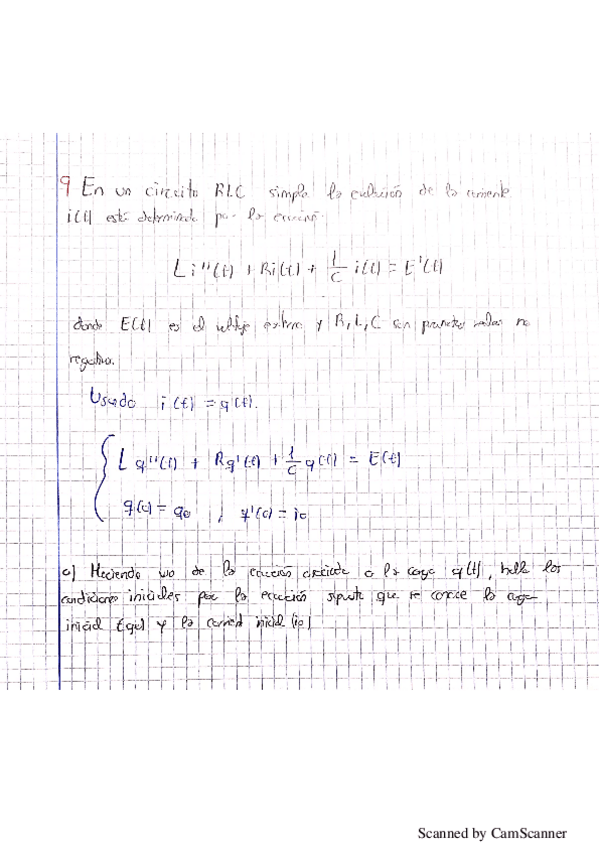 9 En un circuito RLC simple la evolución de la corriente
i(t) está determinada por la ecuación:
L i''(t) + Ri(t) + 1/C i(t) = E'(t)
donde E(t) es el voltaje externo y R, L, C son parametros reales no
negativos.
Usando i(t) = q(t).
{ L q''(t) + Rq'(t) + 1/C q(t) = E(t)
q(0) = q0 , q'(0) = i0
a) Haciendo uso de la ecuación asociada a la carga q(t), halle las
condiciones iniciales para la ecuación supuesto que se conoce la carga
inicial (q0) y la corriente inicial (i0)
Scanned by CamScanner